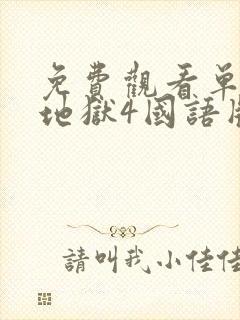 免費觀看單
地獄4國語
請叫我小佳佳